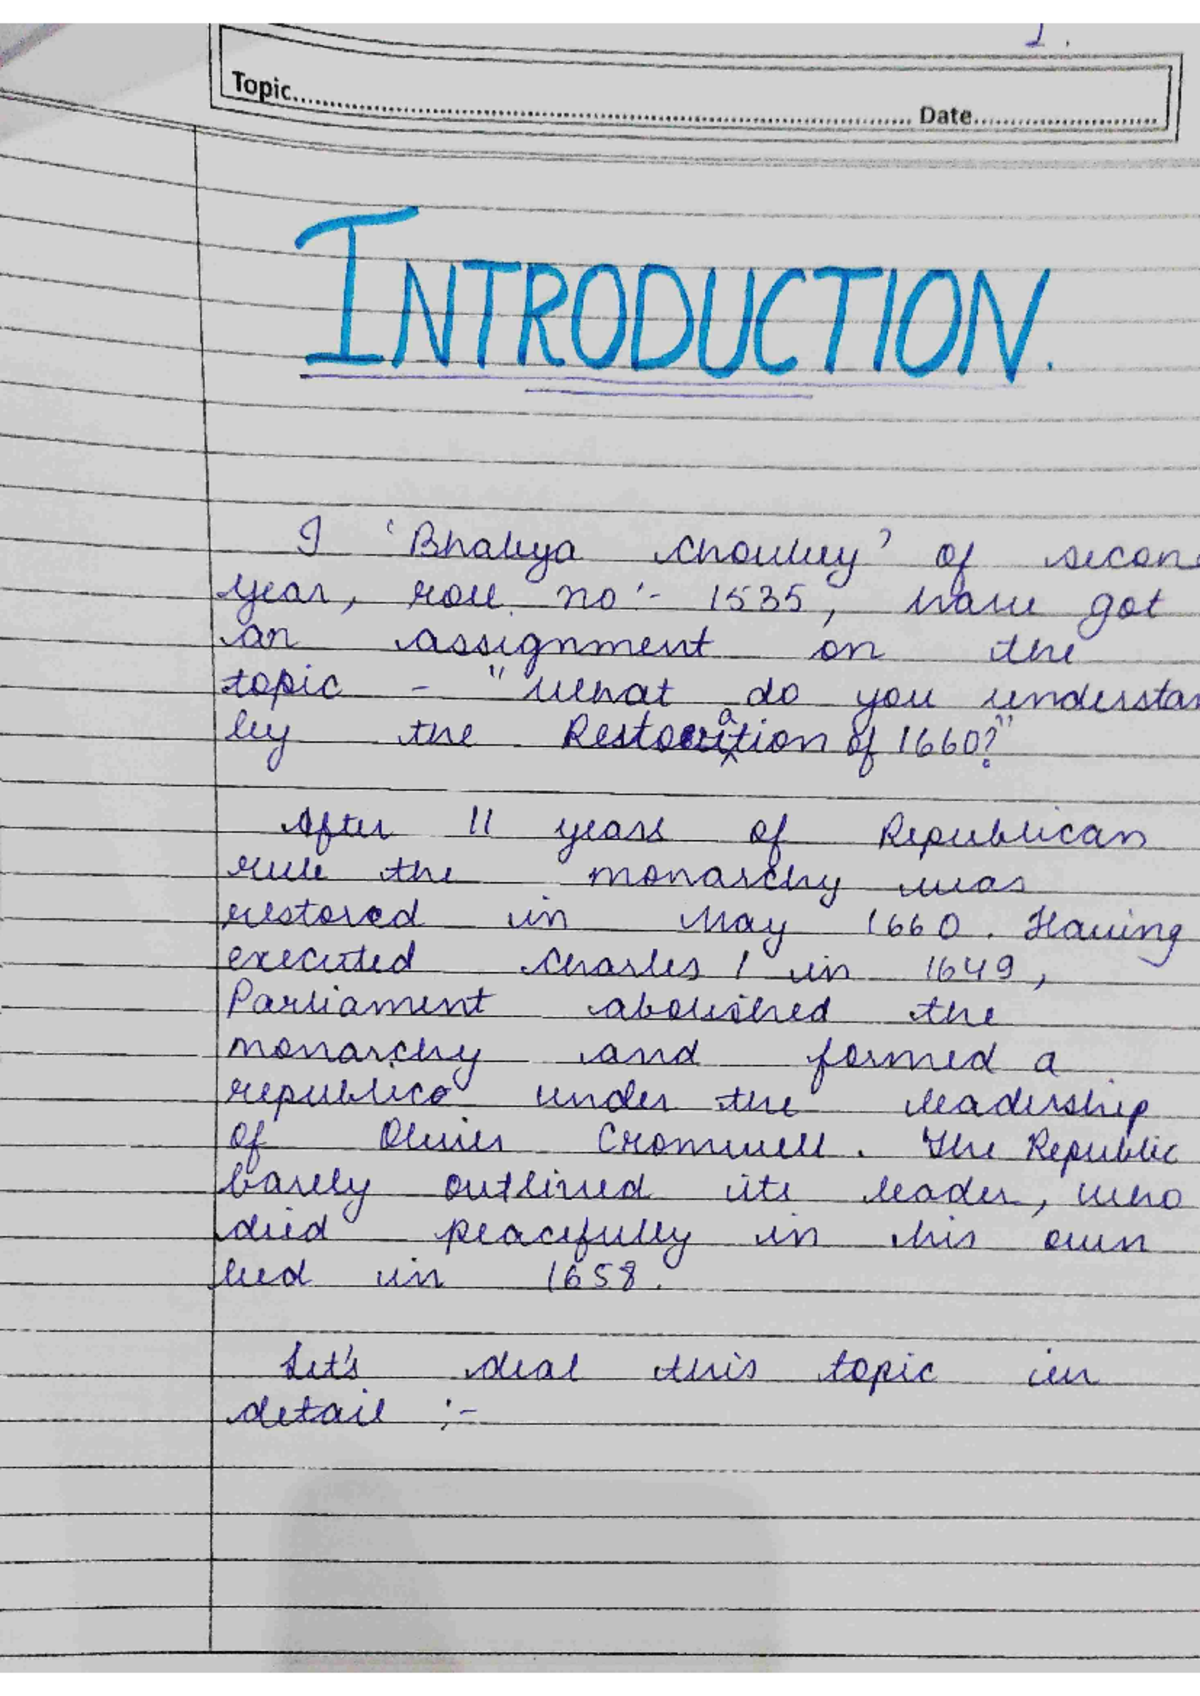 1.
Topic.......... Date..........
INTRODUCTION.
I 'Bhavya Chouhey' of secon
year, roll no :- 1535, have got
an assignment on the
topic - "What do you understan
by the Restoration of 1660?"
After 11 years of Republican
rule the monarchy was
restored in May 1660. Having
executed Charles I in 1649,
Parliament abolished the
monarchy and formed a
republic under the leadership
of Oliver Cromwell. The Republic
barely outlined its leader, who
died peacefully in his own
bed in 1658.
Let's deal this topic in
detail :-